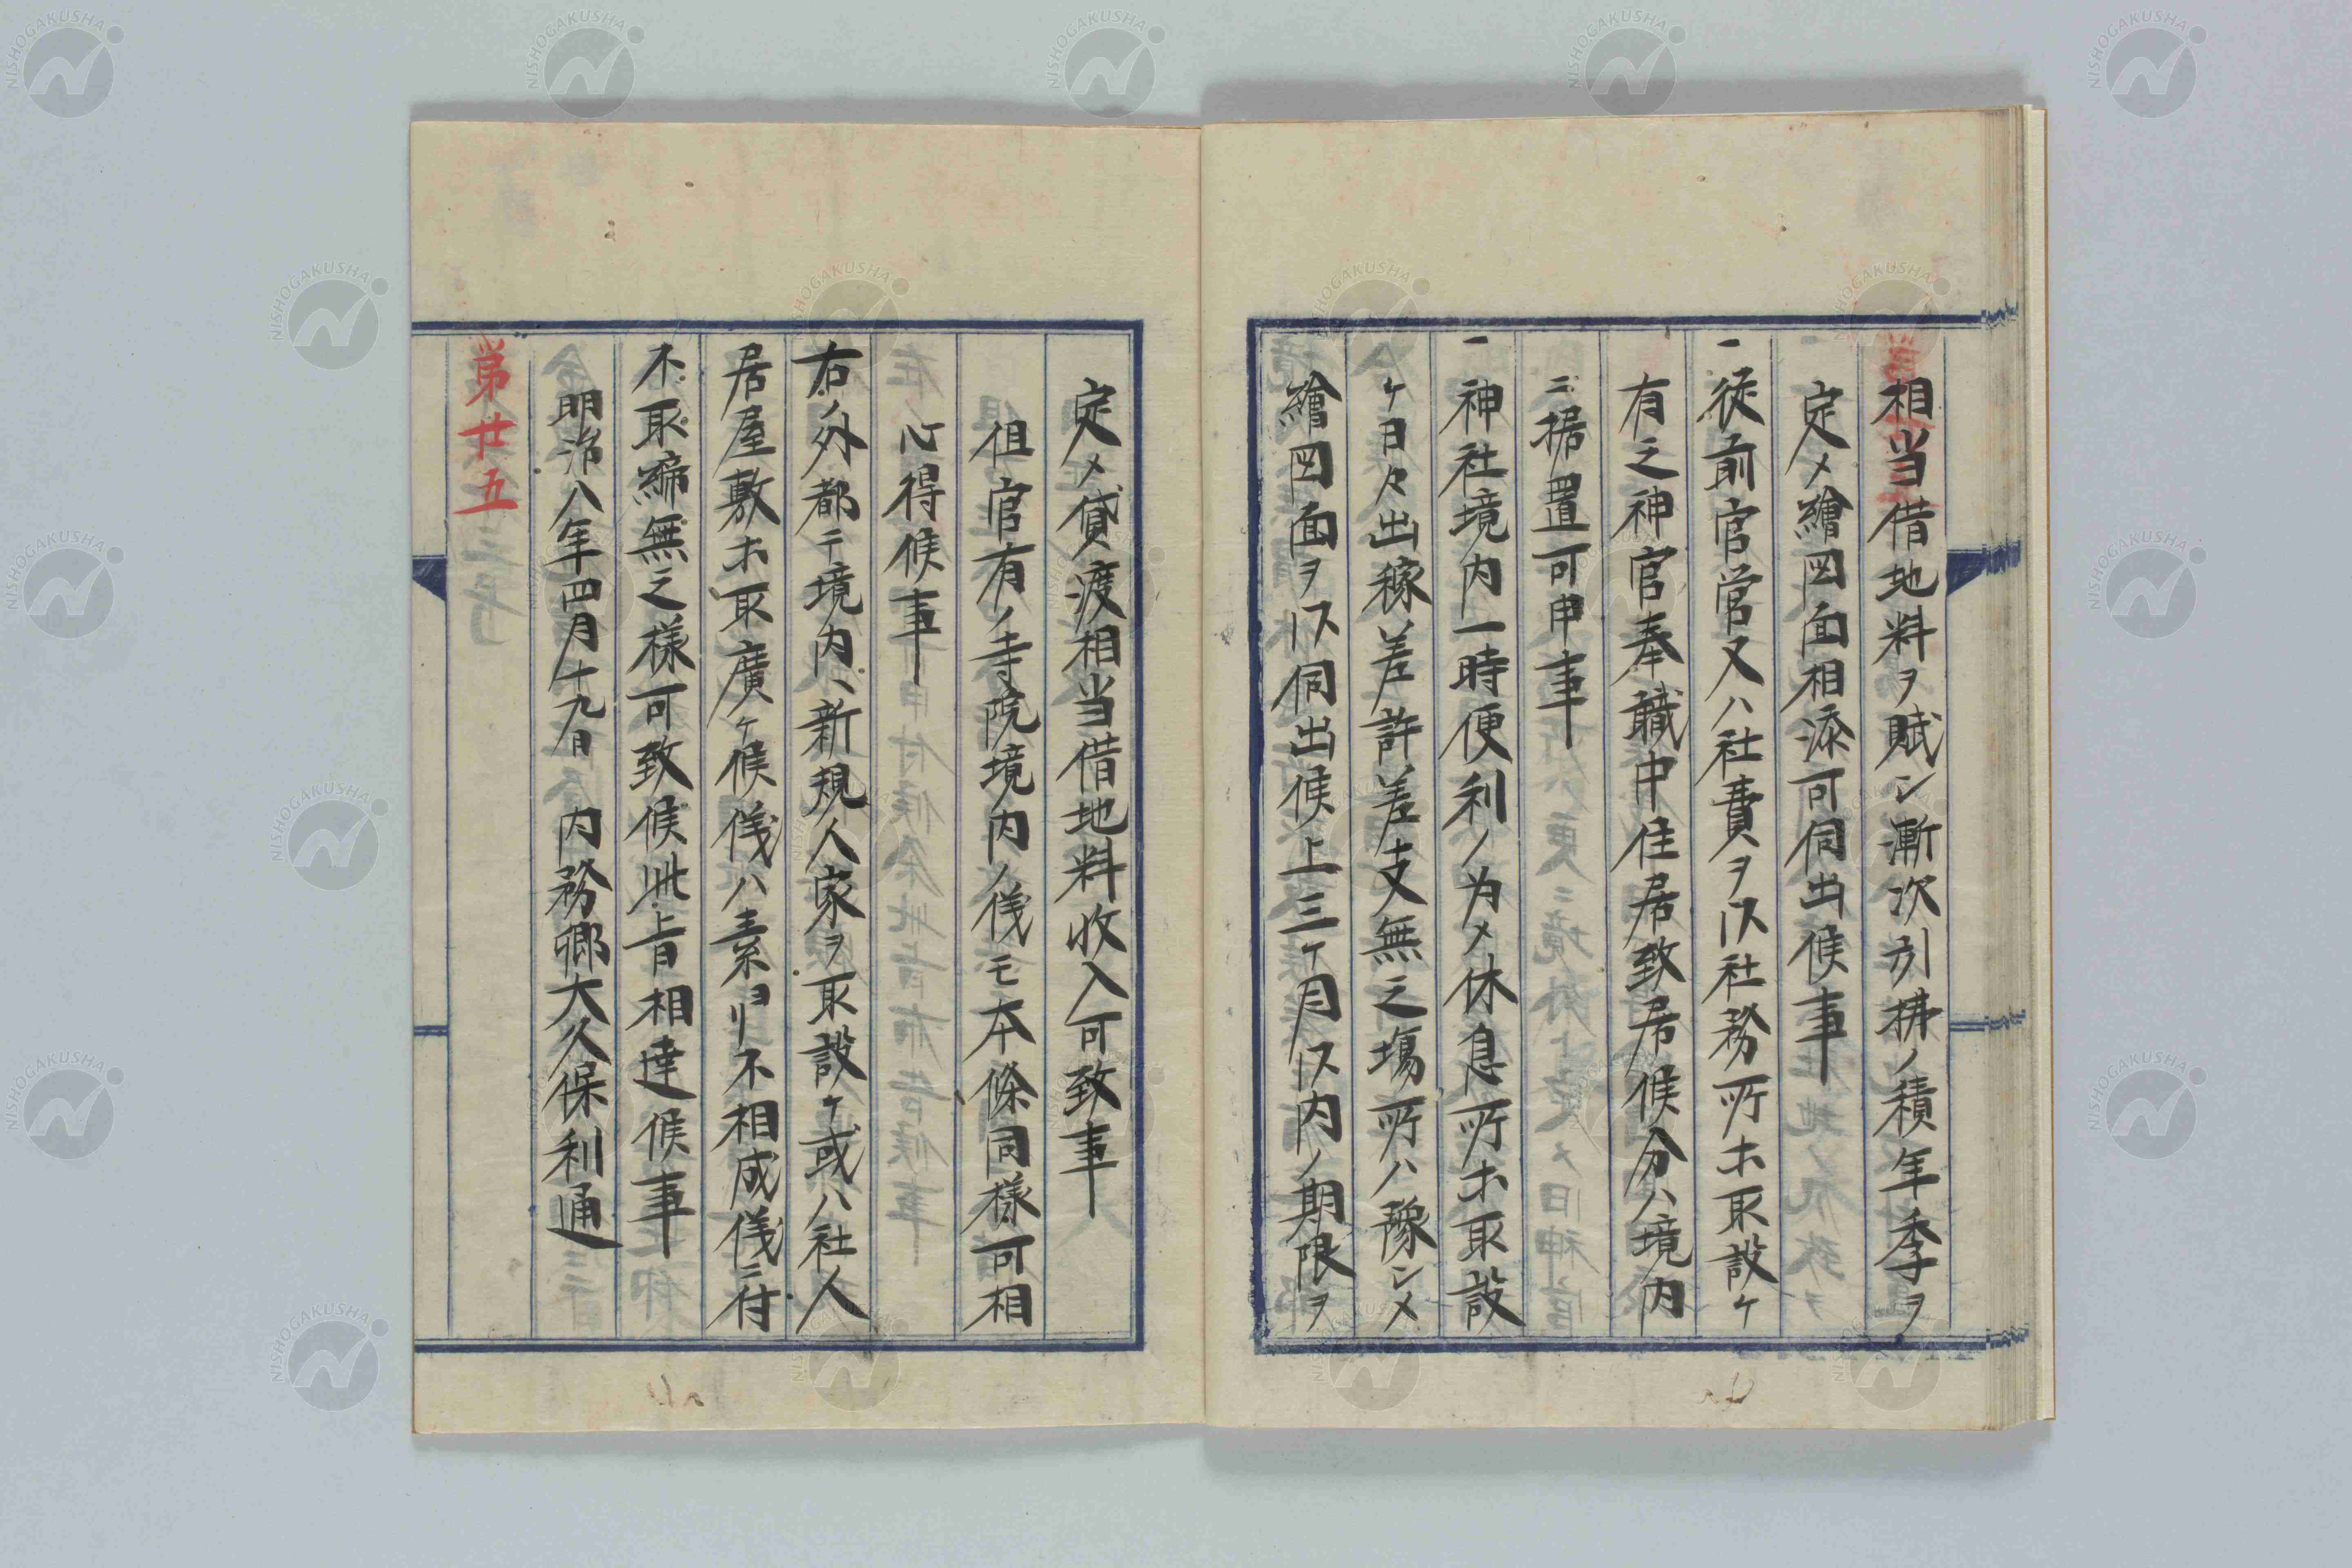 相当借地料ヲ賦シ漸次引拂ノ積年季ヲ
定メ繪図面相添可伺出候事
一従前官営又ハ社費ヲ以社務所ホ取設ケ
有之神官奉職中住居致居候分ハ境内
ニ据置可申事
一神社境内一時便利ノ為メ休息所ホ取設
ケ日々出稼差許差支無之場所ハ豫シメ
繪図面ヲ以伺出候上三ケ月以内ノ期限ヲ
定メ貸渡相当借地料収入可致事
但官有ノ寺院境内ノ儀モ本條同様可相
心得候事
右ノ外都テ境内ハ新規人家ヲ取設ケ或ハ社人
居屋敷ホ取廣ケ候儀ハ素ヨリ不相成儀ニ付
不取締無之様可致候此旨相達候事
明治八年四月十九日 内務卿大久保利通
第廿五
NISHOGAKUSHA